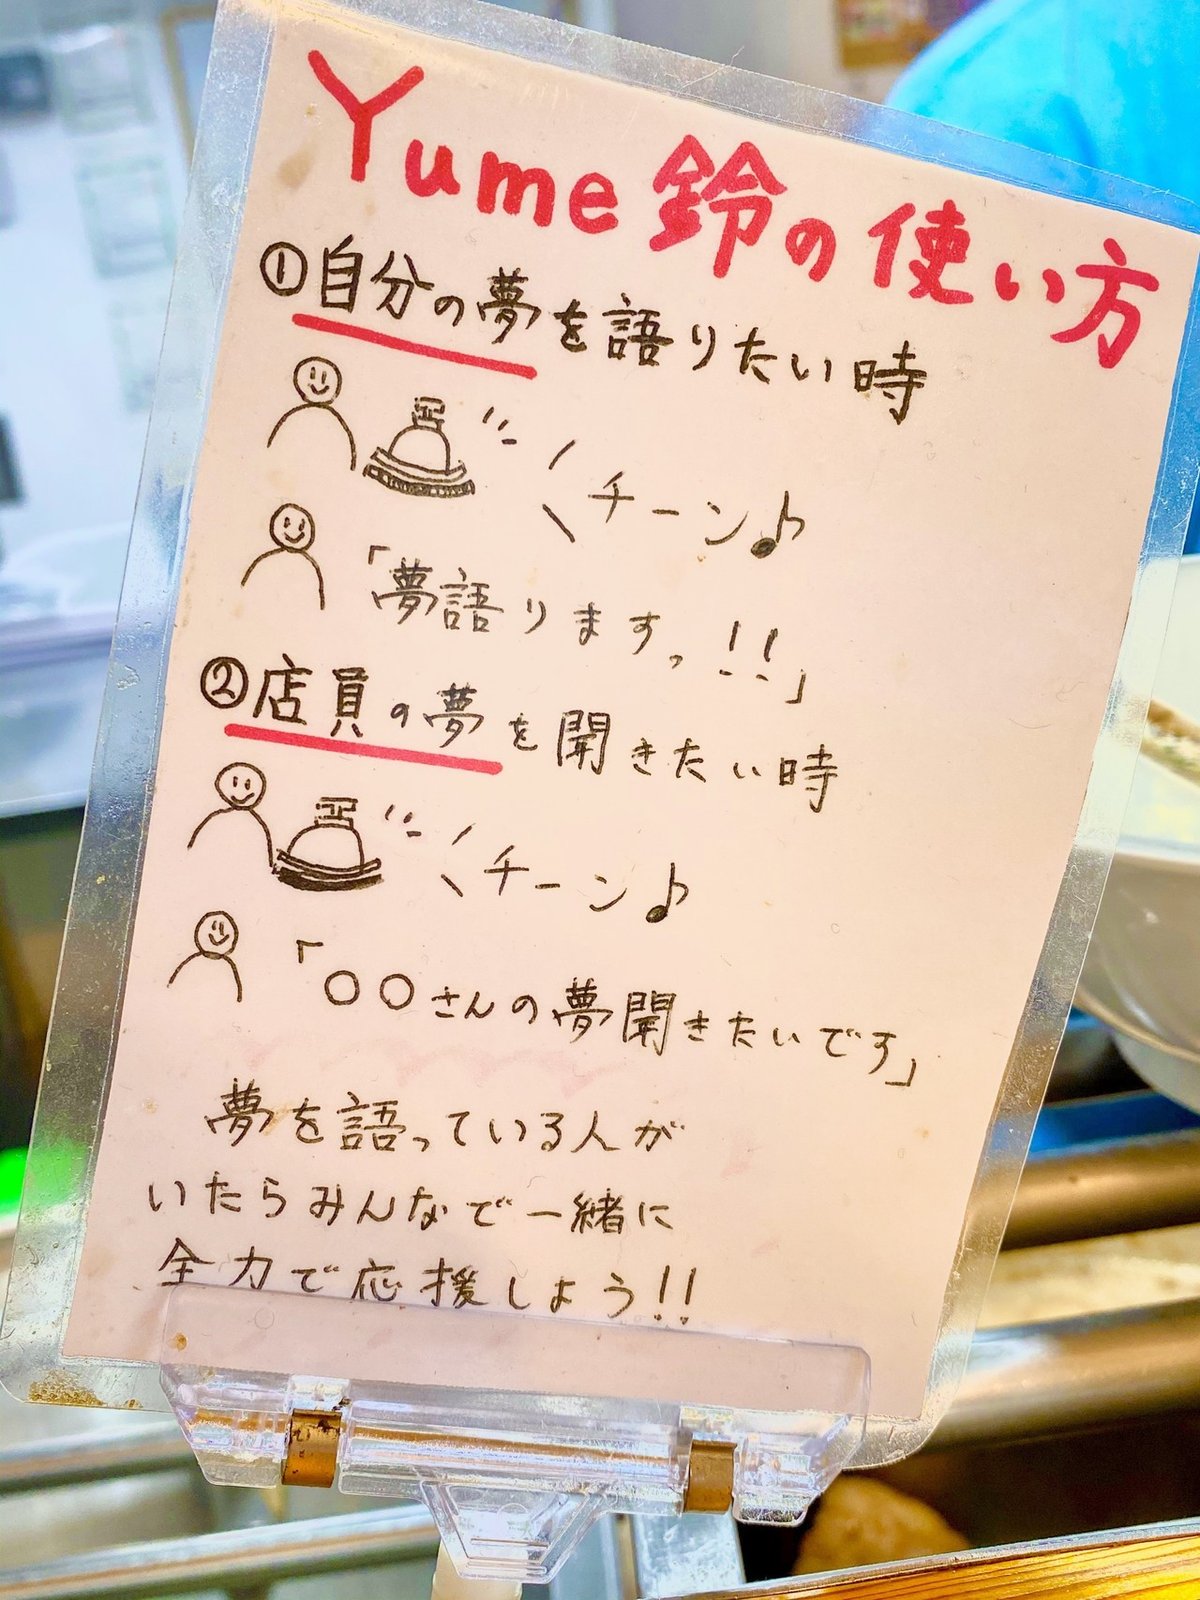 Yume鈴の使い方
①自分の夢を語りたい時
チーン♪
「夢語りますっ!!」
②店員の夢を聞きたい時
チーン♪
「〇〇さんの夢聞きたいです」
夢を語っている人が
いたらみんなで一緒に
全力で応援しよう!!